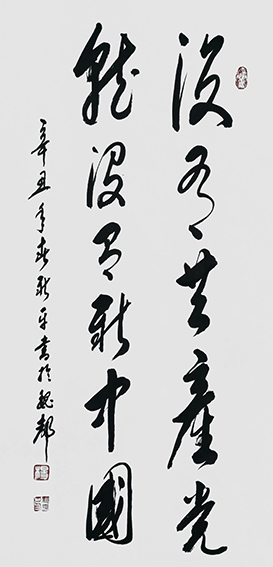 没有共產党
就没有新中國
辛丑年春新平書於魏都